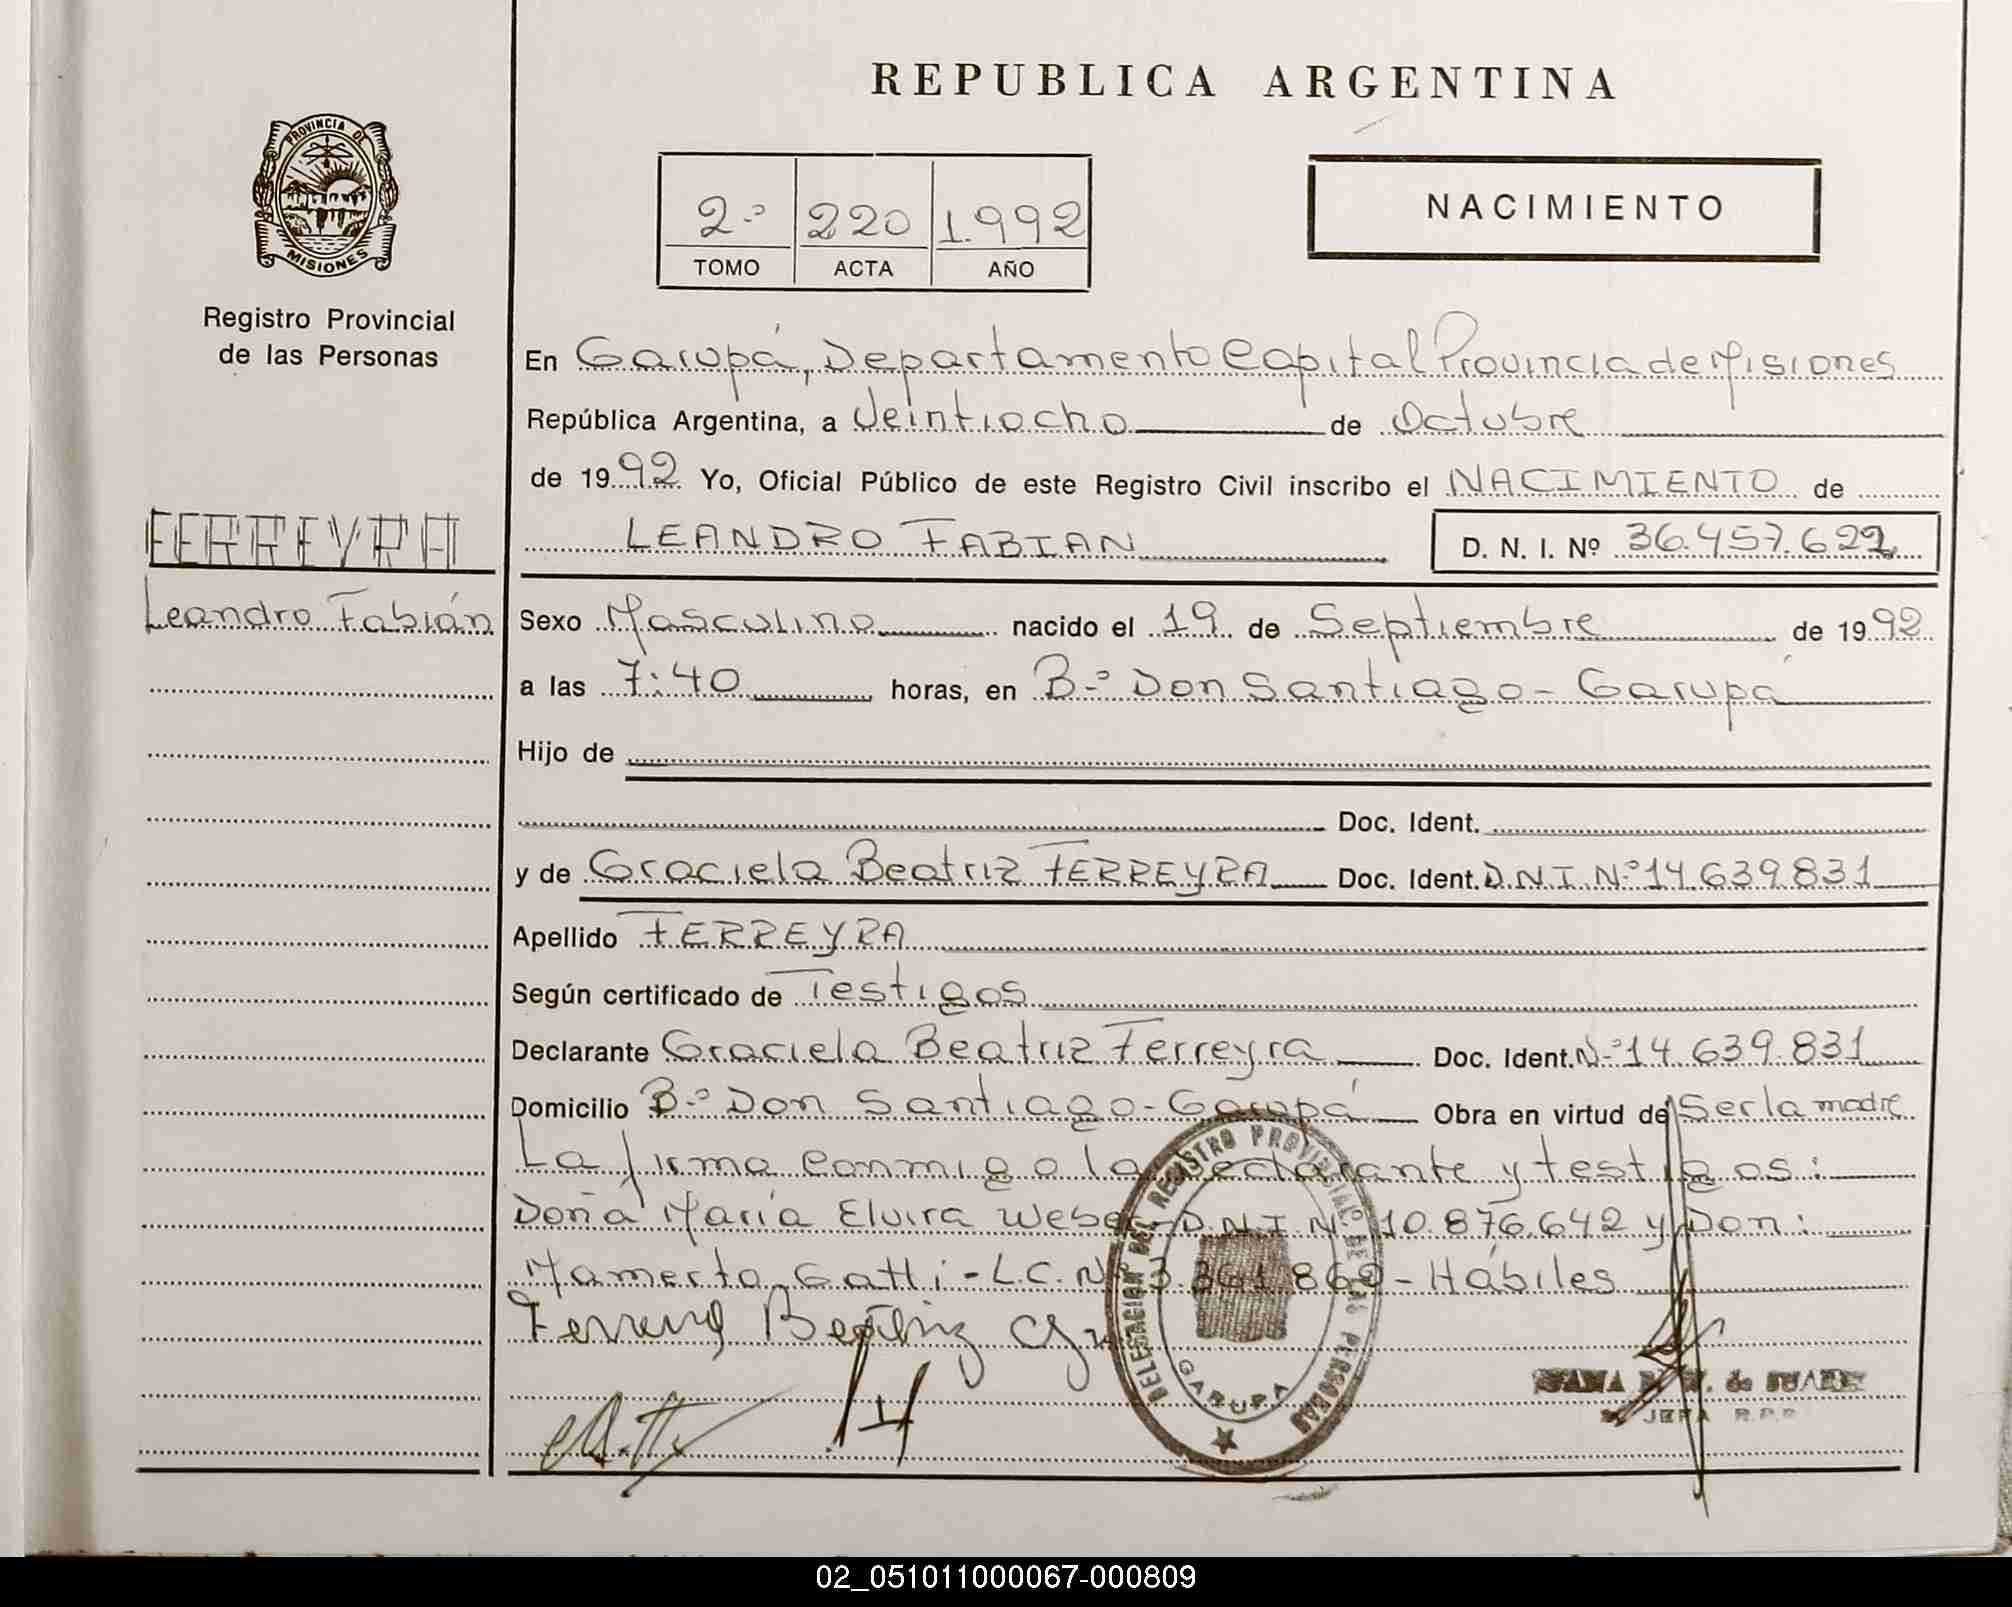 REPUBLICA ARGENTINA
PROVINCIA DE
MISIONES
Registro Provincial
de las Personas
2º 220 1.992
TOMO ACTA AÑO
NACIMIENTO
En Garupá, Departamento Capital Provincia de Misiones
República Argentina, a Veintiocho de Octubre
de 1992 Yo, Oficial Público de este Registro Civil inscribo el NACIMIENTO de
FERREYRA
LEANDRO FABIAN D. N. I. Nº 36.457.622
Leandro Fabián
Sexo Masculino nacido el 19 de Septiembre de 1992
a las 7:40 horas, en Bº Don Santiago - Garupá
Hijo de
Doc. Ident.
y de Graciela Beatriz FERREYRA Doc. Ident. D.N.I. Nº 14.639.831
Apellido FERREYRA
Según certificado de Testigos
Declarante Graciela Beatriz Ferreyra Doc. Ident. Nº 14.639.831
Domicilio Bº Don Santiago - Garupá Obra en virtud de Ser la madre
La firma conmigo la declarante y testigos:
Doña María Elvira Weber - D.N.I. Nº 10.876.642 y Don:
Mamerto Gatti - L.C. Nº 3.361.860 - Hábiles
Ferreyra Beatriz
DELEGACION DEL REGISTRO PROVINCIAL DE LAS PERSONAS
GARUPA
de SUAREZ
JEFA R.P.P.
02_051011000067-000809